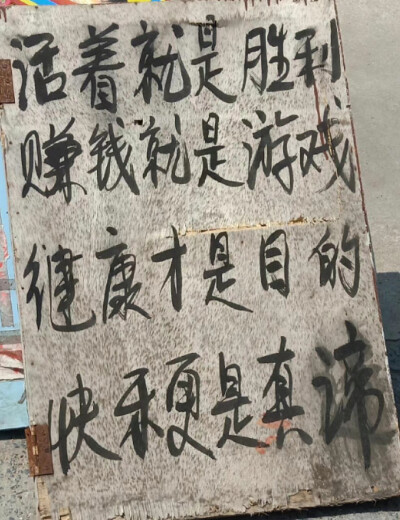 活着就是胜利
赚钱就是游戏
健康才是目的
快乐更是真谛